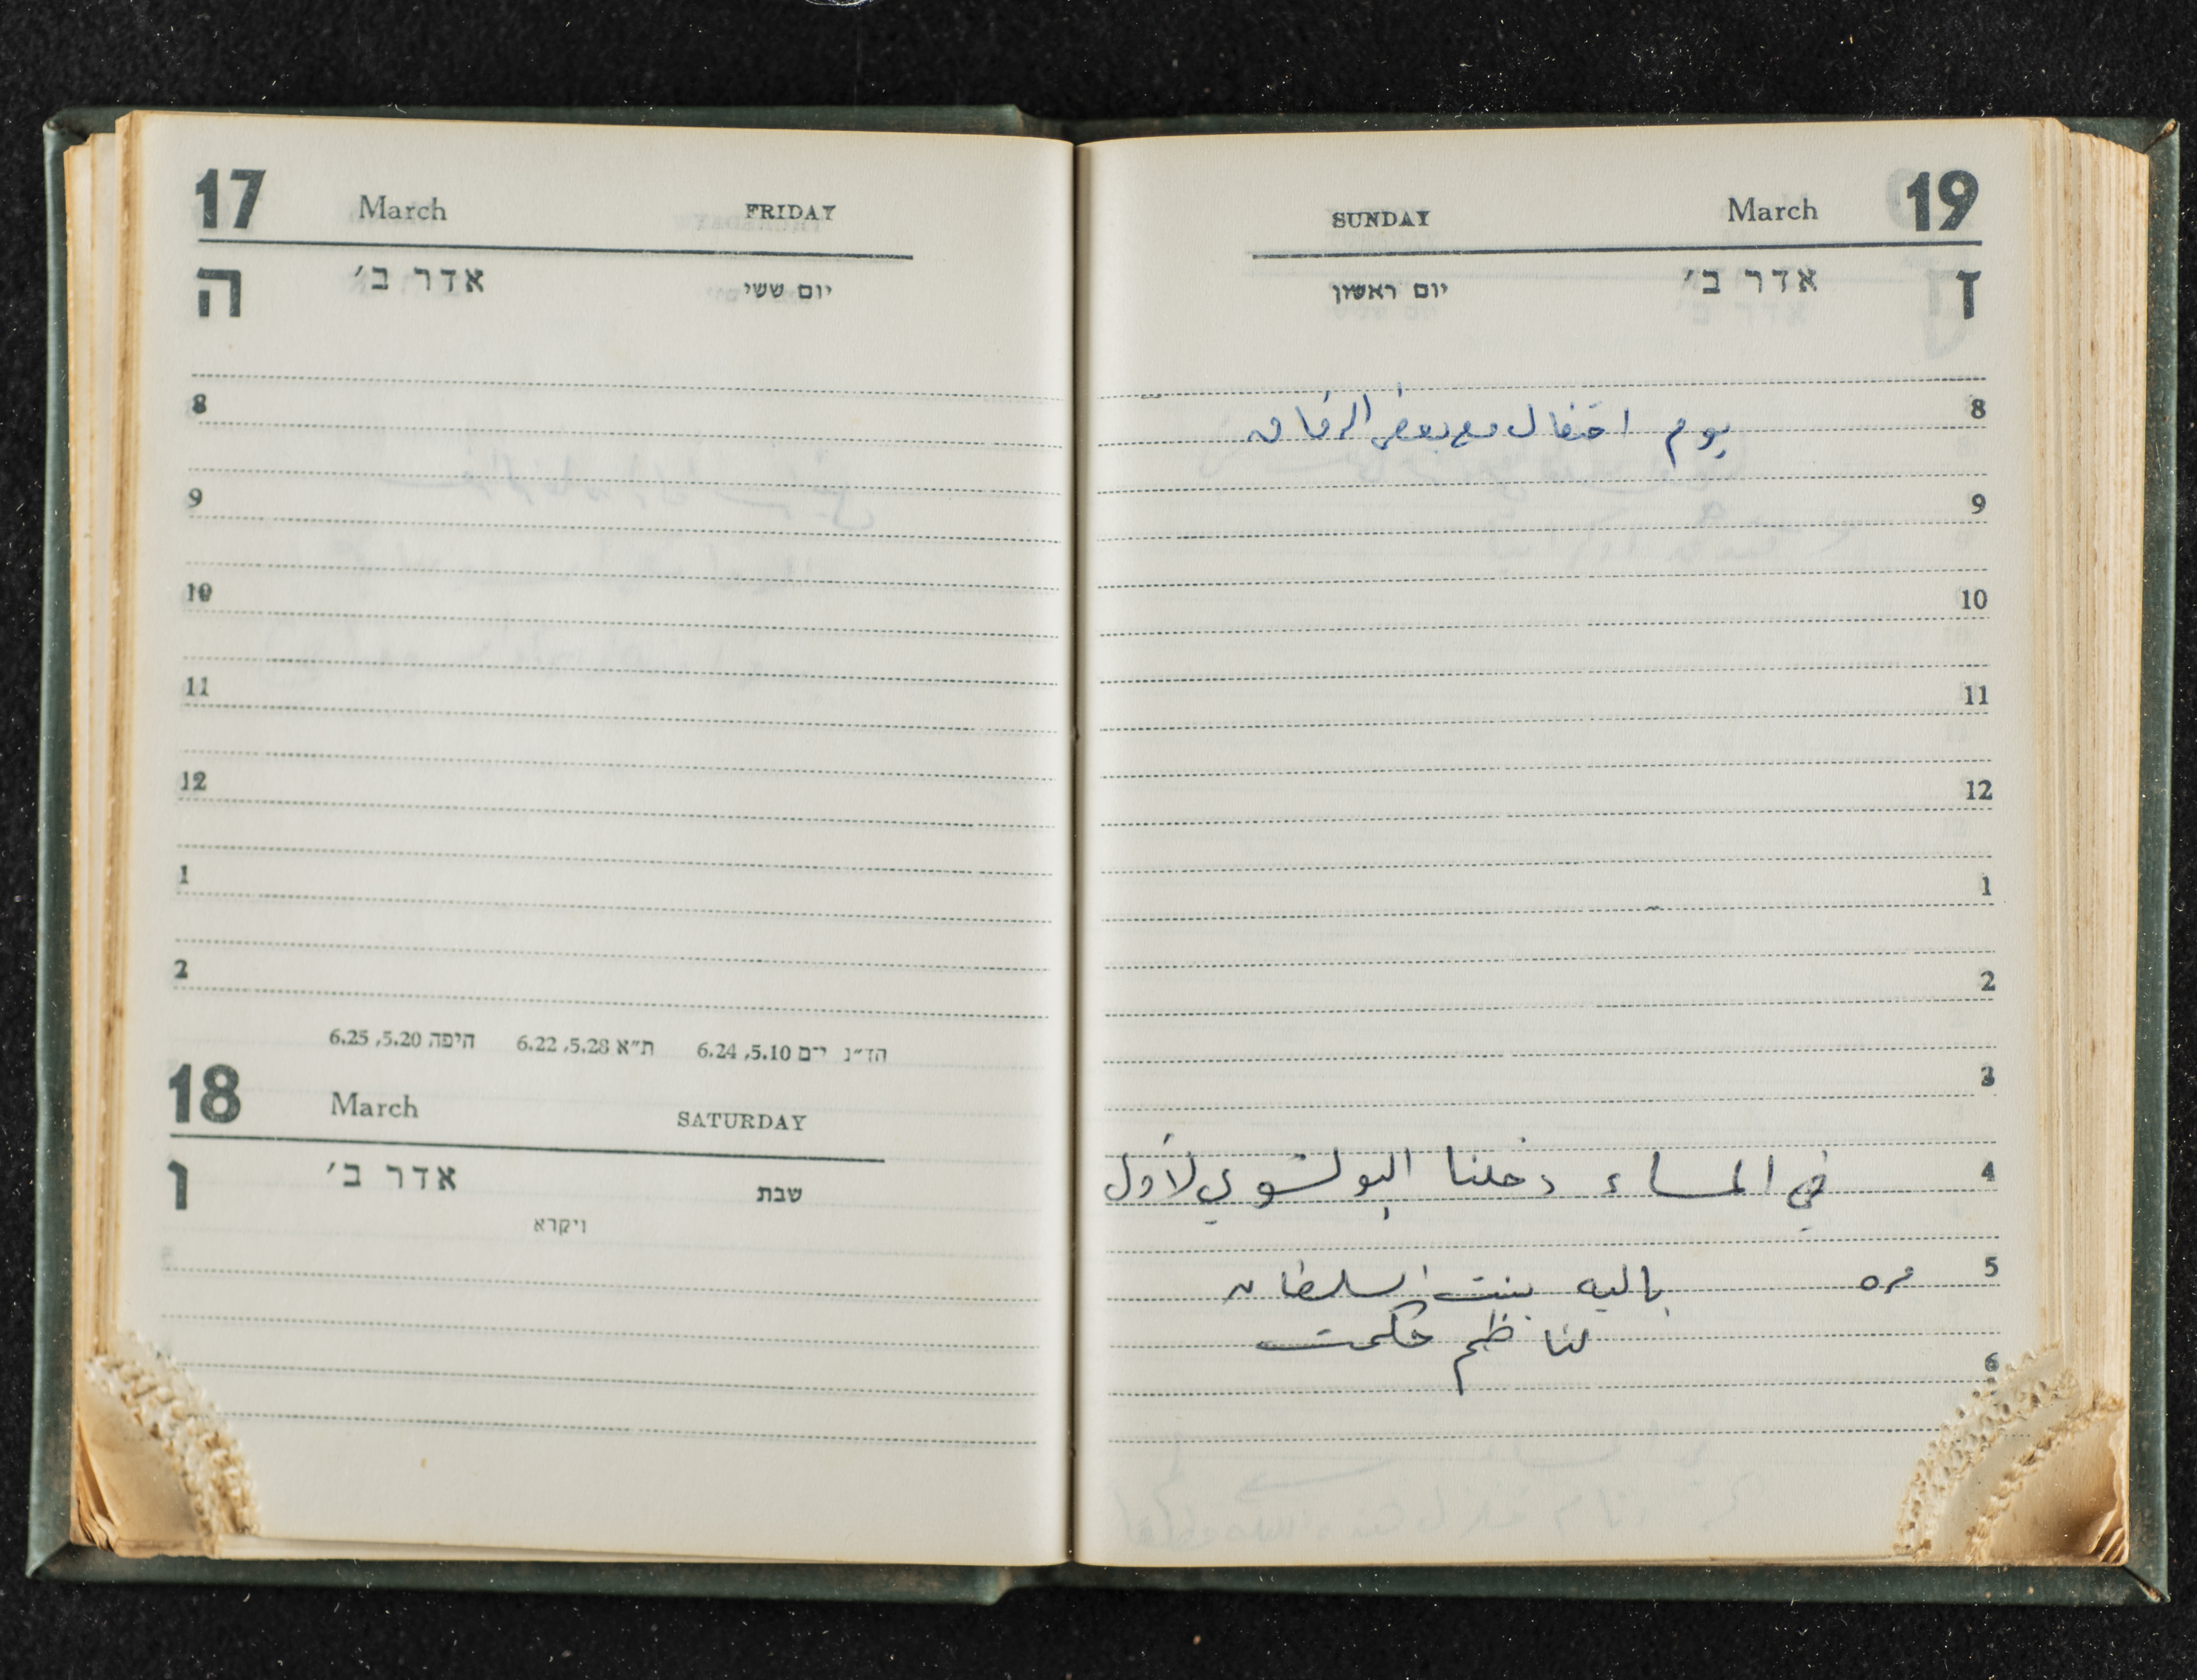 17 March FRIDAY
ה אדר ב׳ יום ששי
8
9
10
11
12
1
2
הד״נ י־ם 5.10, 6.24 ת״א 5.28, 6.22 חיפה 5.20, 6.25
18 March SATURDAY
ו אדר ב׳ שבת
ויקרא
SUNDAY March 19
ז אדר ב׳ יום ראשון
8
يوم احتفال مع بعض الرفاق
9
10
11
12
1
2
3
4
في المساء دخلنا البولشوي لأول
5
مره باليه بنت السلطان
لناظم حكمت
6